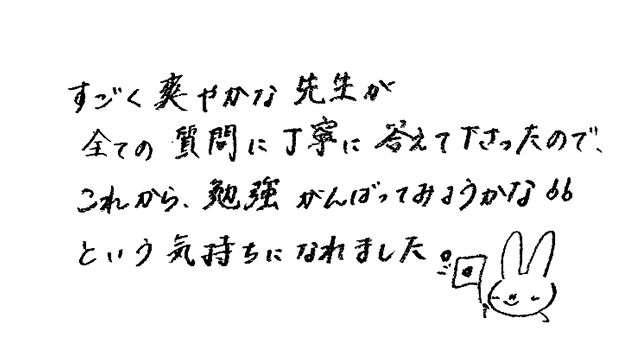 すごく爽やかな先生が
全ての質問に丁寧に答えて下さったので、
これから、勉強がんばってみようかなǒǒ
という気持ちになれました。